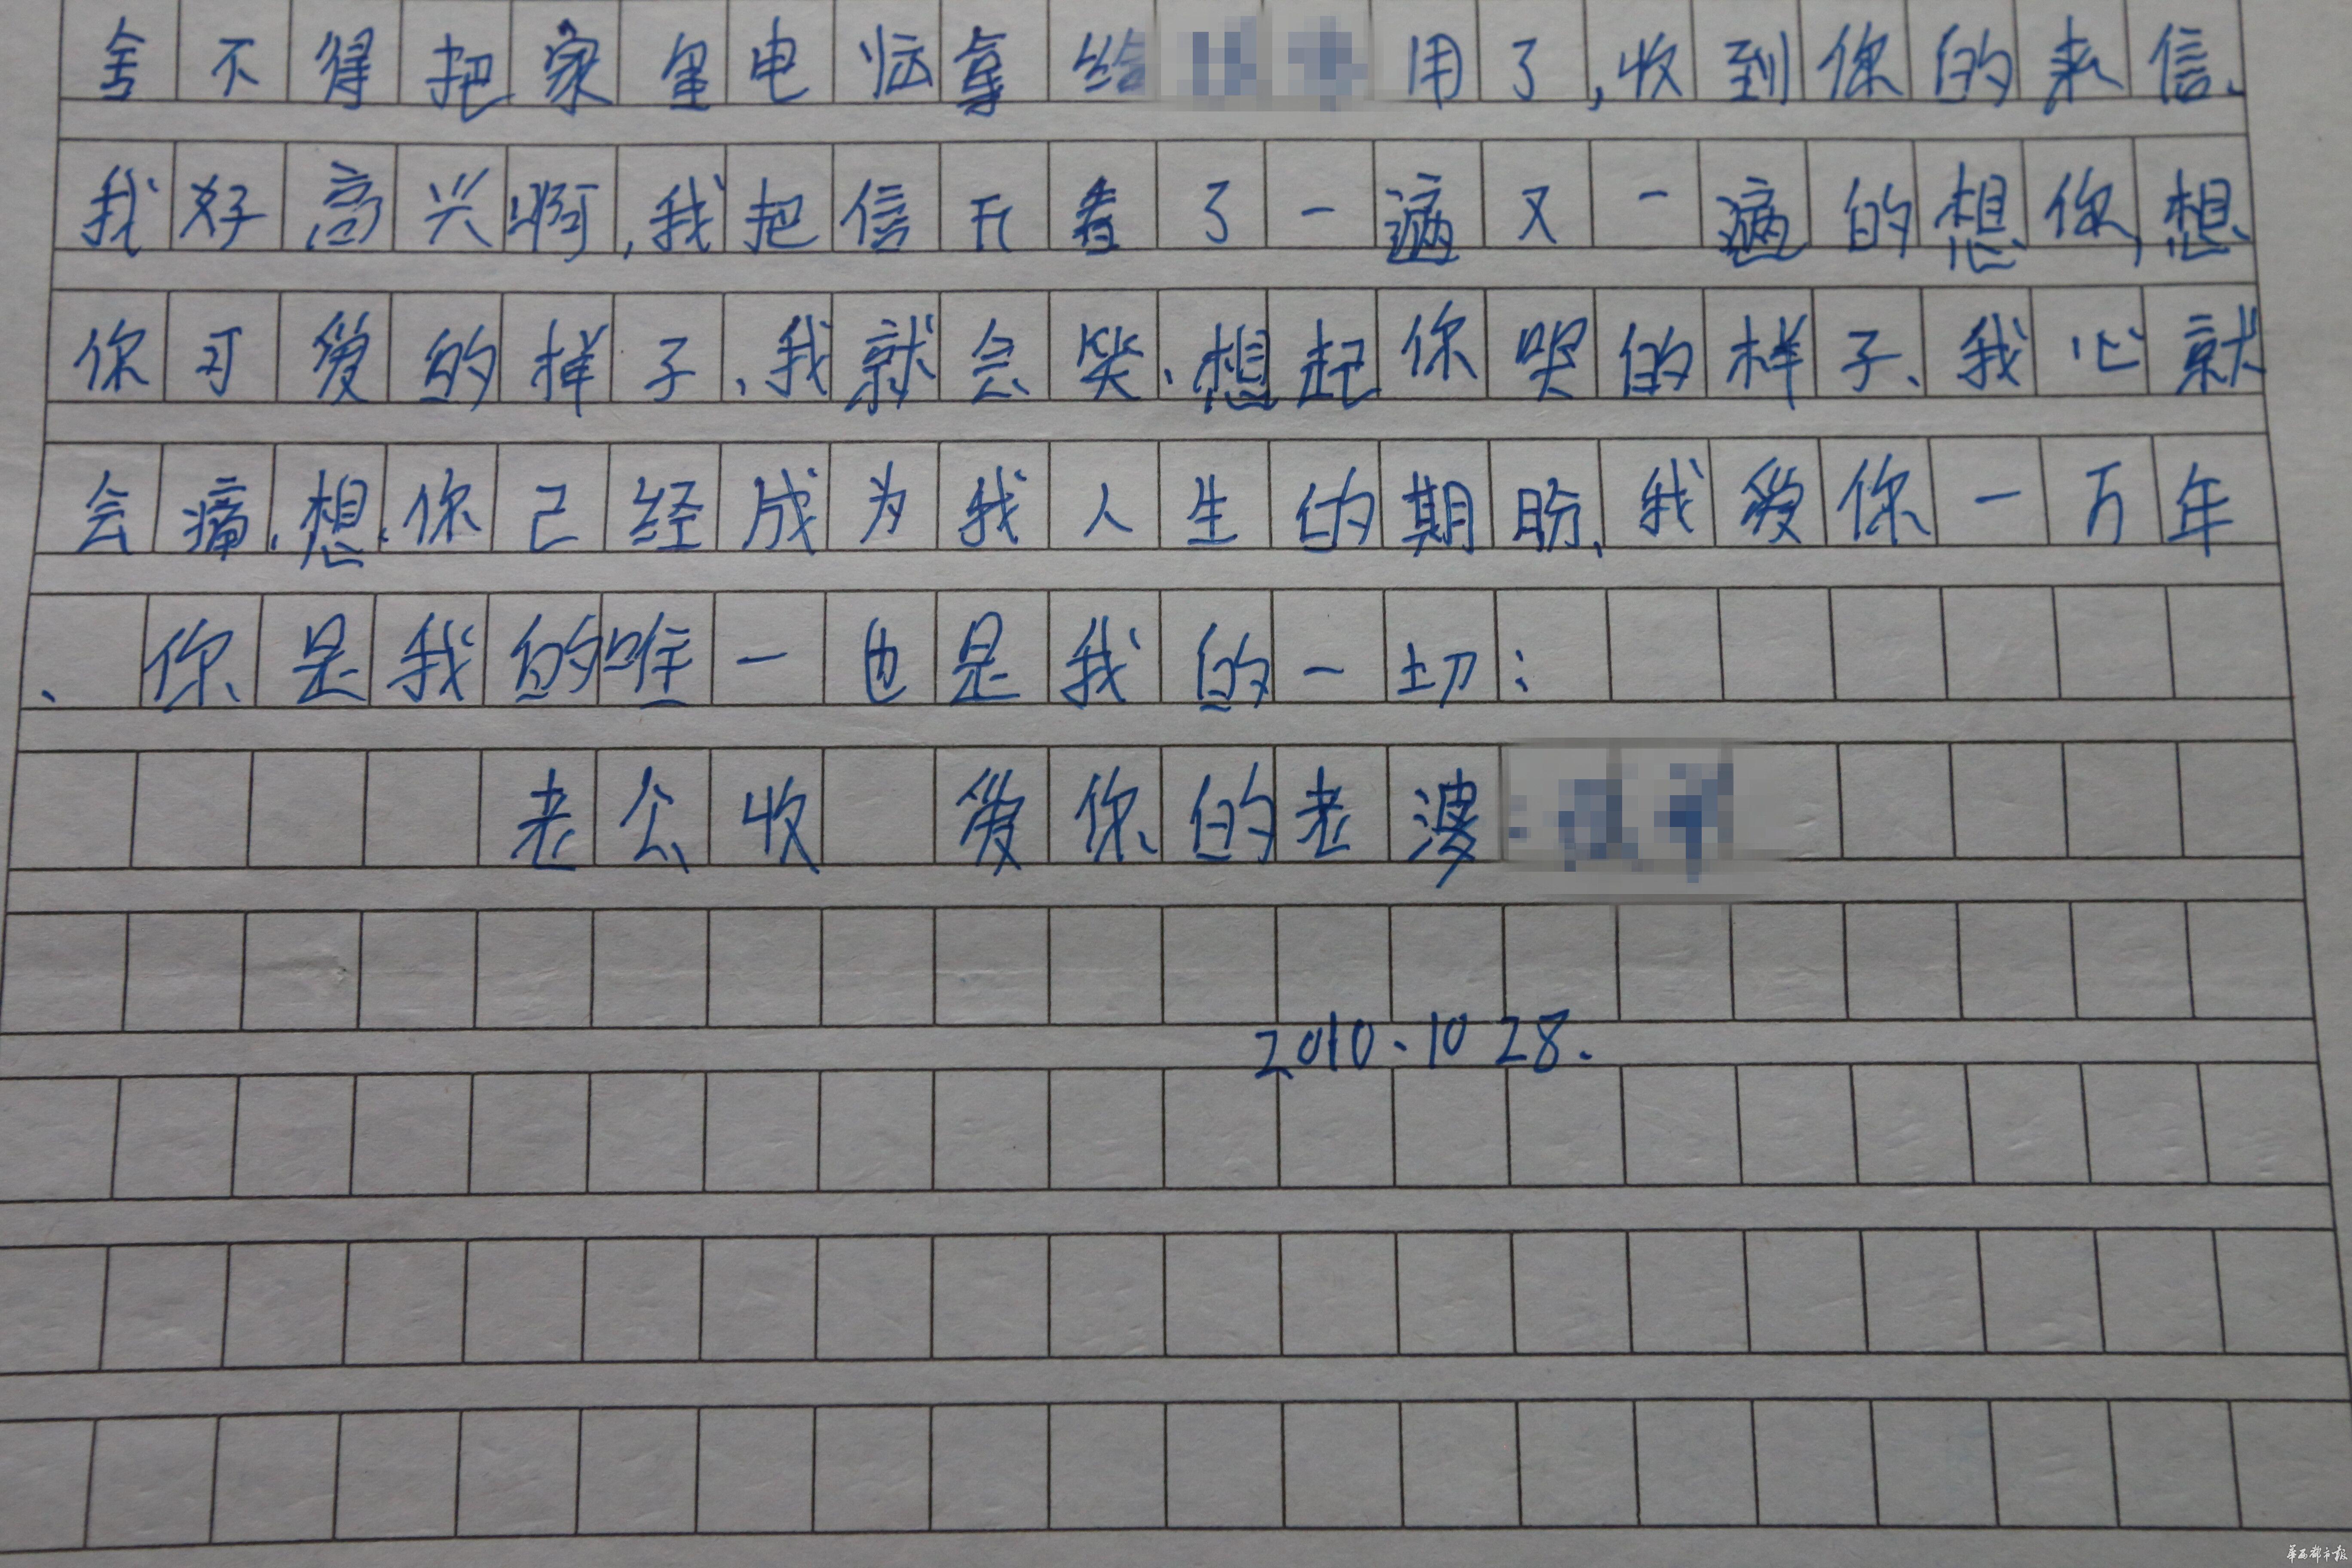 舍不得把家里电脑拿给用了,收到你的来信、
我好高兴啊,我把信开看了一遍又一遍的想你,想
你可爱的样子、我就会笑、想起你哭的样子、我心就
会痛、想、你己经成为我人生的期盼、我爱你一万年
、你是我的唯一也是我的一切:
老公收 爱你的老婆
2010.10 28.
华西都市报